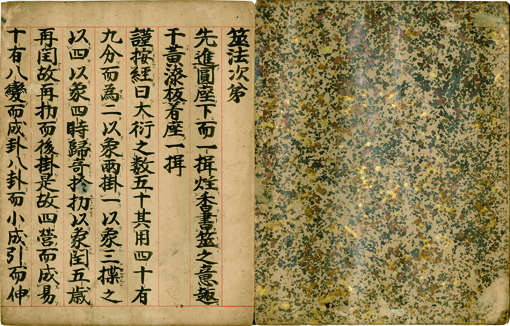 筮法次苐
先進圓座下而一揖炷書筮之意趣
于黄漆板着座一揖
謹按經曰大衍之数五十其用四十有
九分而為二以象兩掛一以象三揲之
以四以象四時歸奇於扐以象閏五歳
再閏故再扐而後掛是故四營而成易
十有八變而成卦八卦而小成引而伸